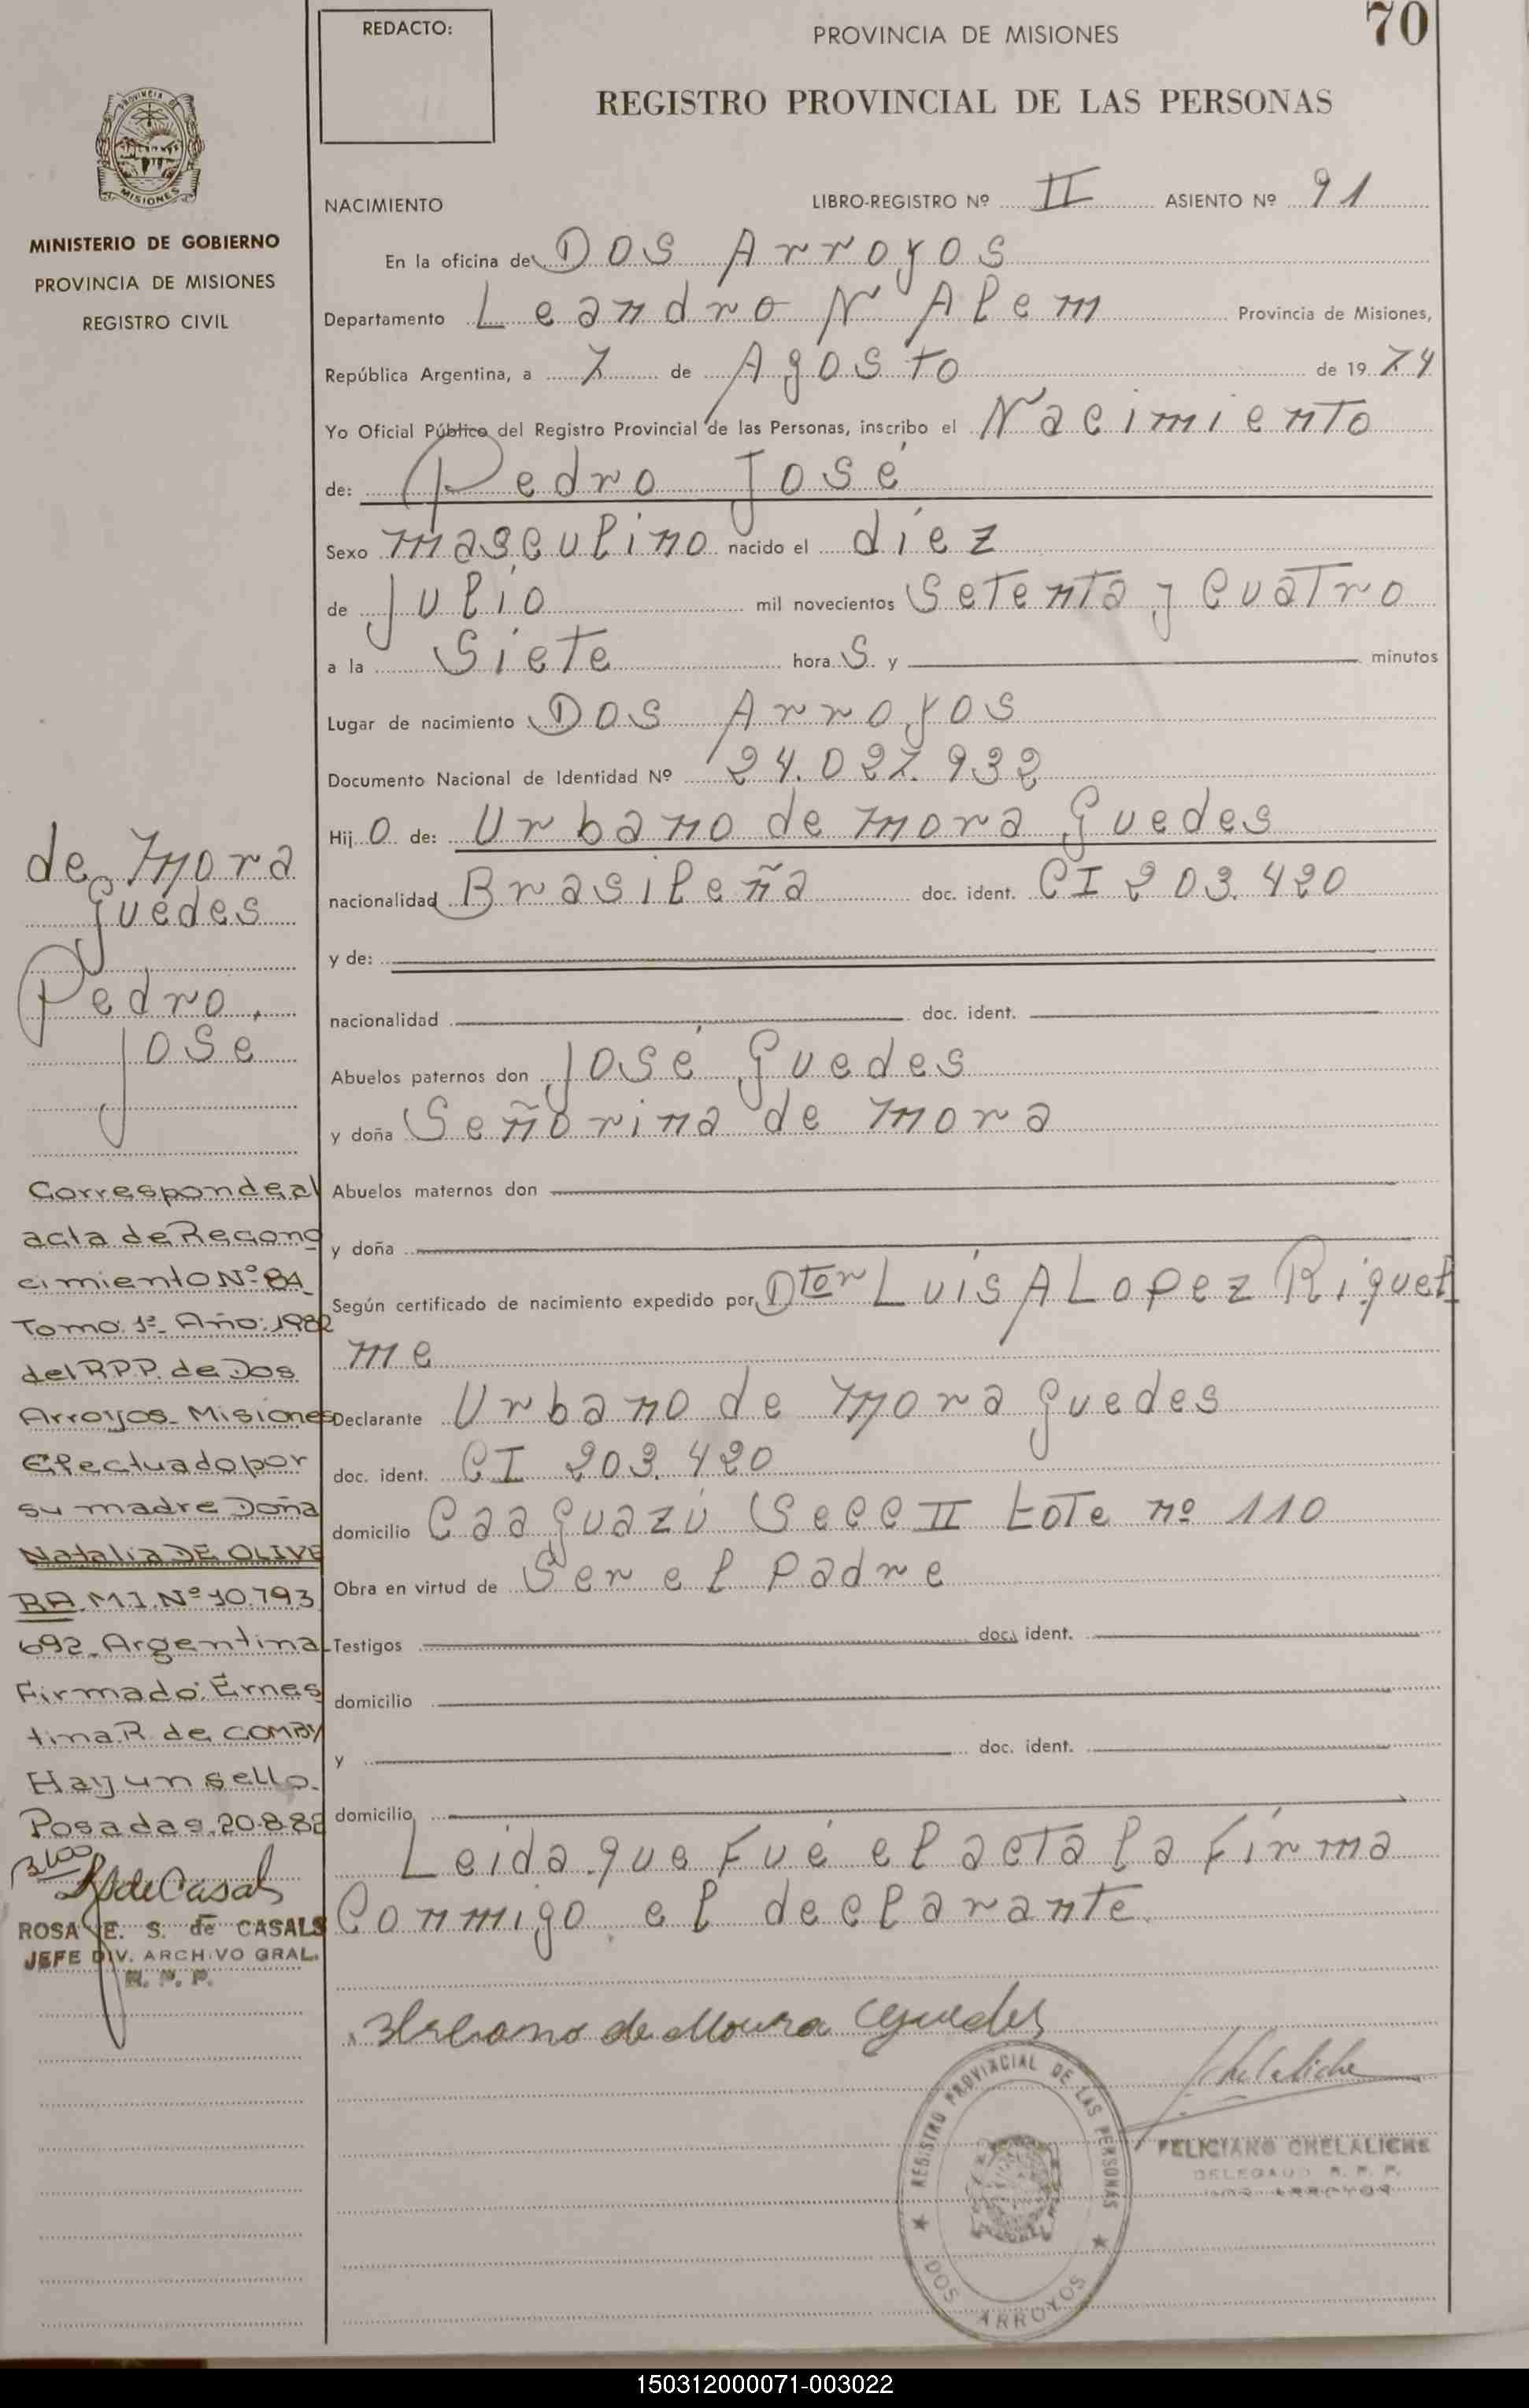 REDACTO:
PROVINCIA DE MISIONES
70
REGISTRO PROVINCIAL DE LAS PERSONAS
PROVINCIA DE
MISIONES
MINISTERIO DE GOBIERNO
PROVINCIA DE MISIONES
REGISTRO CIVIL
NACIMIENTO LIBRO-REGISTRO Nº II ASIENTO Nº 91
En la oficina de Dos Arroyos
Departamento Leandro N Alem Provincia de Misiones,
República Argentina, a 7 de Agosto de 1974
Yo Oficial Público del Registro Provincial de las Personas, inscribo el Nacimiento
de: Pedro José
Sexo masculino nacido el diez
de Julio mil novecientos setenta y cuatro
a la siete horas y minutos
Lugar de nacimiento Dos Arroyos
Documento Nacional de Identidad Nº 24.027.932
Hijo de: Urbano de mora Guedes
nacionalidad Brasileña doc. ident. CI 203.420
y de:
nacionalidad doc. ident.
Abuelos paternos don José Guedes
y doña Señorina de mora
Abuelos maternos don
y doña
Según certificado de nacimiento expedido por Dtor Luis A Lopez Riquel
me
Declarante Urbano de mora guedes
doc. ident. CI 203.420
domicilio Caaguazú Secc II Lote nº 110
Obra en virtud de Ser el Padre
Testigos doc. ident.
domicilio
y doc. ident.
domicilio
Leida que fué el acta la firma
Conmigo el declarante
Urbano de Moura Guedes
de Mora
Guedes
Pedro
José
Corresponde al
acta de Recono
cimiento Nº 84
Tomo: 1º Año: 1982
del R.P.P. de Dos
Arroyos - Misiones
Efectuado por
su madre Doña
Natalia DE OLIVE
RA M.I. Nº 10.793
692 - Argentina
Firmado: Ernes
tina R de COMBY
Hay un sello.
Posadas, 20-8-82
R de Casals
ROSA E. S. de CASALS
JEFE DIV. ARCHIVO GRAL.
R. P. P.
REGISTRO PROVINCIAL DE LAS PERSONAS
DOS ARROYOS
Chelaliche
FELICIANO CHELALICHE
DELEGADO R. P. P.
DOS ARROYOS
150312000071-003022